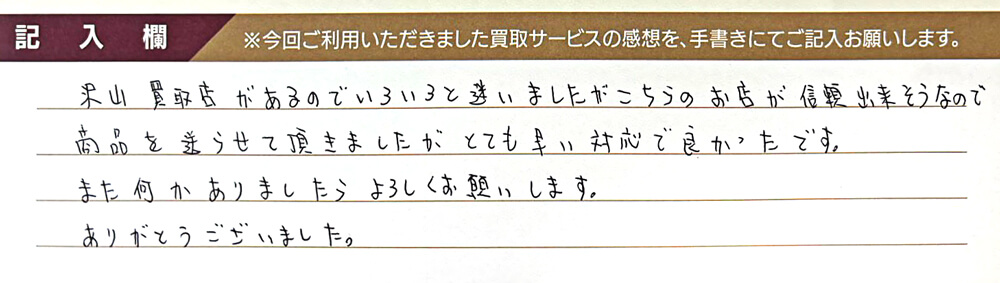 記入欄
※今回ご利用いただきました買取サービスの感想を、手書きにてご記入お願いします。
沢山 買取店があるのでいろいろと迷いましたがこちらのお店が信頼出来そうなので
商品を送らせて頂きましたがとても早い対応で良かったです。
また何かありましたらよろしくお願いします。
ありがとうございました。